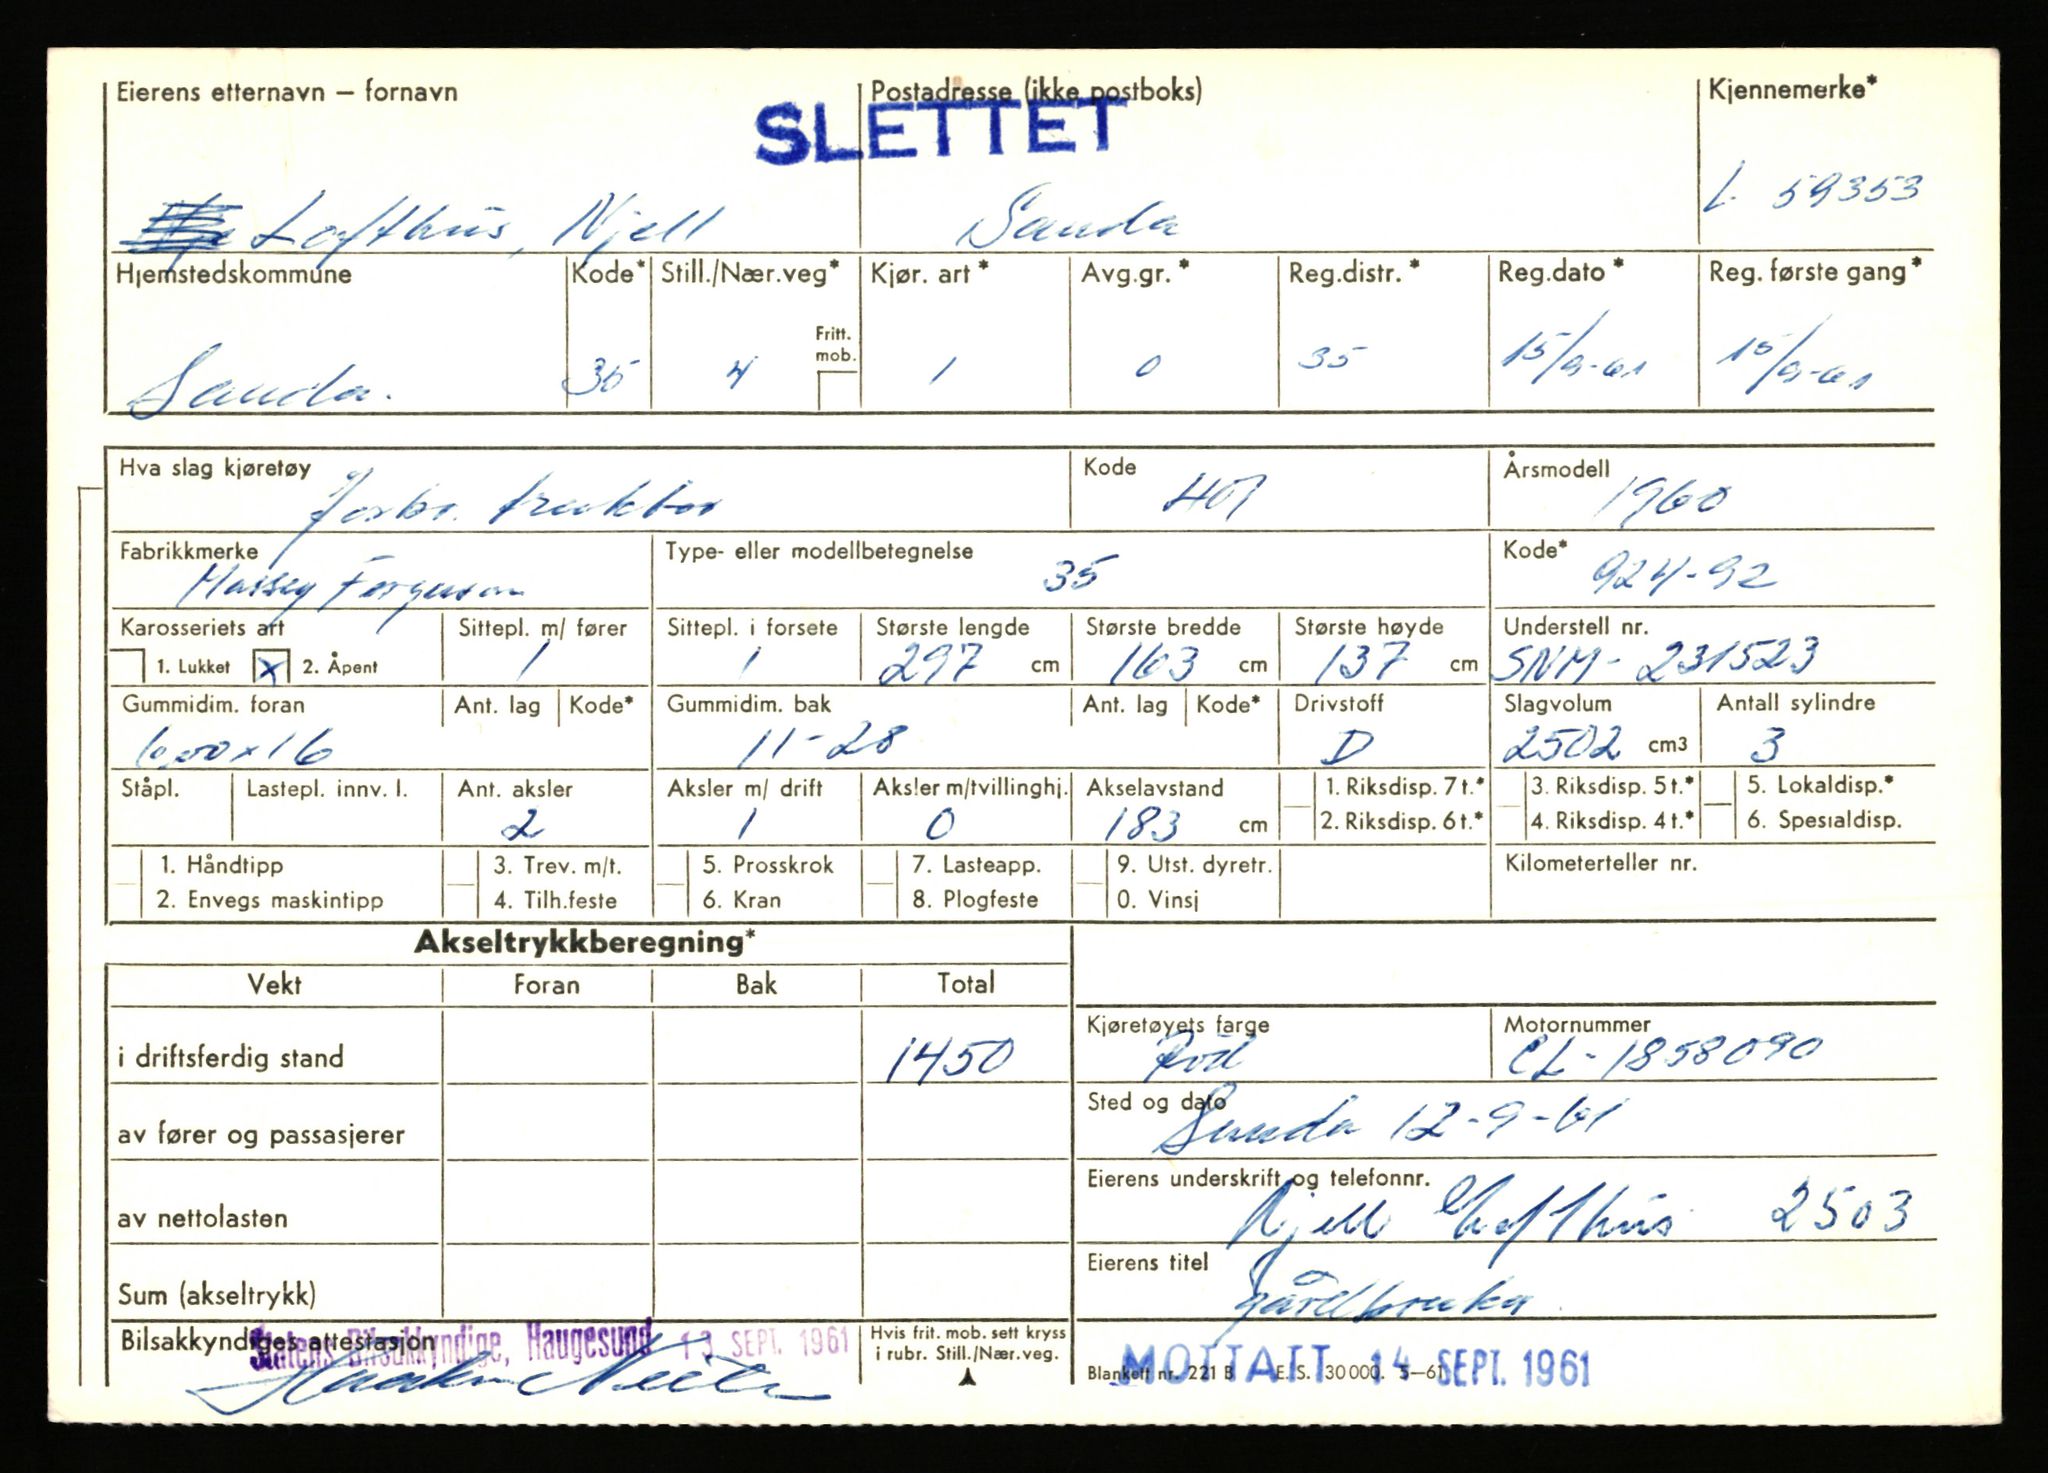 Eierens etternavn – fornavn Postadresse (ikke postboks) Kjennemerke*
SLETTET
Lofthus, Njell Sauda L 59353
Hjemstedskommune Kode* Still./Nær.veg* Kjør. art* Avg.gr.* Reg.distr.* Reg.dato* Reg. første gang*
Fritt. mob.
Sauda. 35 4 1 0 35 15/9-61 15/9-61
Hva slag kjøretøy Kode Årsmodell
Jorbr. traktor 401 1960
Fabrikkmerke Type- eller modellbetegnelse Kode*
Massey Ferguson 35 924-92
Karosseriets art Sittepl. m/ fører Sittepl. i forsete Største lengde Største bredde Største høyde Understell nr.
1. Lukket X 2. Åpent 1 1 297 cm 163 cm 137 cm SNM-231523
Gummidim. foran Ant. lag Kode* Gummidim. bak Ant. lag Kode* Drivstoff Slagvolum Antall sylindre
6,00x16 11-28 D 2502 cm3 3
Ståpl. Lastepl. innv. l. Ant. aksler Aksler m/ drift Aksler m/tvillinghj. Akselavstand 1. Riksdisp. 7 t.* 3. Riksdisp. 5 t.* 5. Lokaldisp.*
2 1 0 183 cm 2. Riksdisp. 6 t.* 4. Riksdisp. 4 t.* 6. Spesialdisp.
1. Håndtipp 3. Trev. m/t. 5. Prosskrok 7. Lasteapp. 9. Utst. dyretr. Kilometerteller nr.
2. Envegs maskintipp 4. Tilh.feste 6. Kran 8. Plogfeste 0. Vinsj
Akseltrykkberegning*
Vekt Foran Bak Total
Kjøretøyets farge Motornummer
i driftsferdig stand 1450 Rød CL-1858090
Sted og dato
Sauda 12-9-61
av fører og passasjerer
Eierens underskrift og telefonnr.
av nettolasten Njell Lofthus 2503
Eierens titel
Sum (akseltrykk) gårdbruker
Bilsakkyndiges attestasjon Hvis frit. mob. sett kryss
i rubr. Still./Nær.veg.
Statens Bilsakkyndige, Haugesund 13 SEPT. 1961
Blankett nr. 221 B E. S. 30 000. 5–61
MOTTATT 14 SEPT. 1961